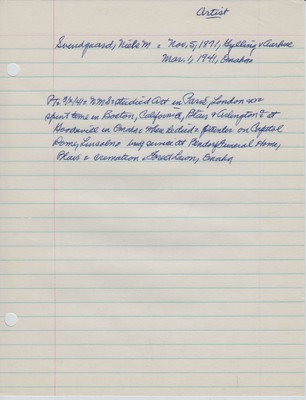 Artist
Svendgaard, Niels M = Nov. 5, 1871, Hylling v Aarhus
Mar. 1, 1941, Omaha
3/6/41 = N.M.S. studied Art in Paris, London
spent time in Boston, California, Blair & Arlington & at
in Omaha when he died = painter on Capitol
Dome, Lincoln = serv at General Home,
Blair = cremation = Forest Lawn, Omaha